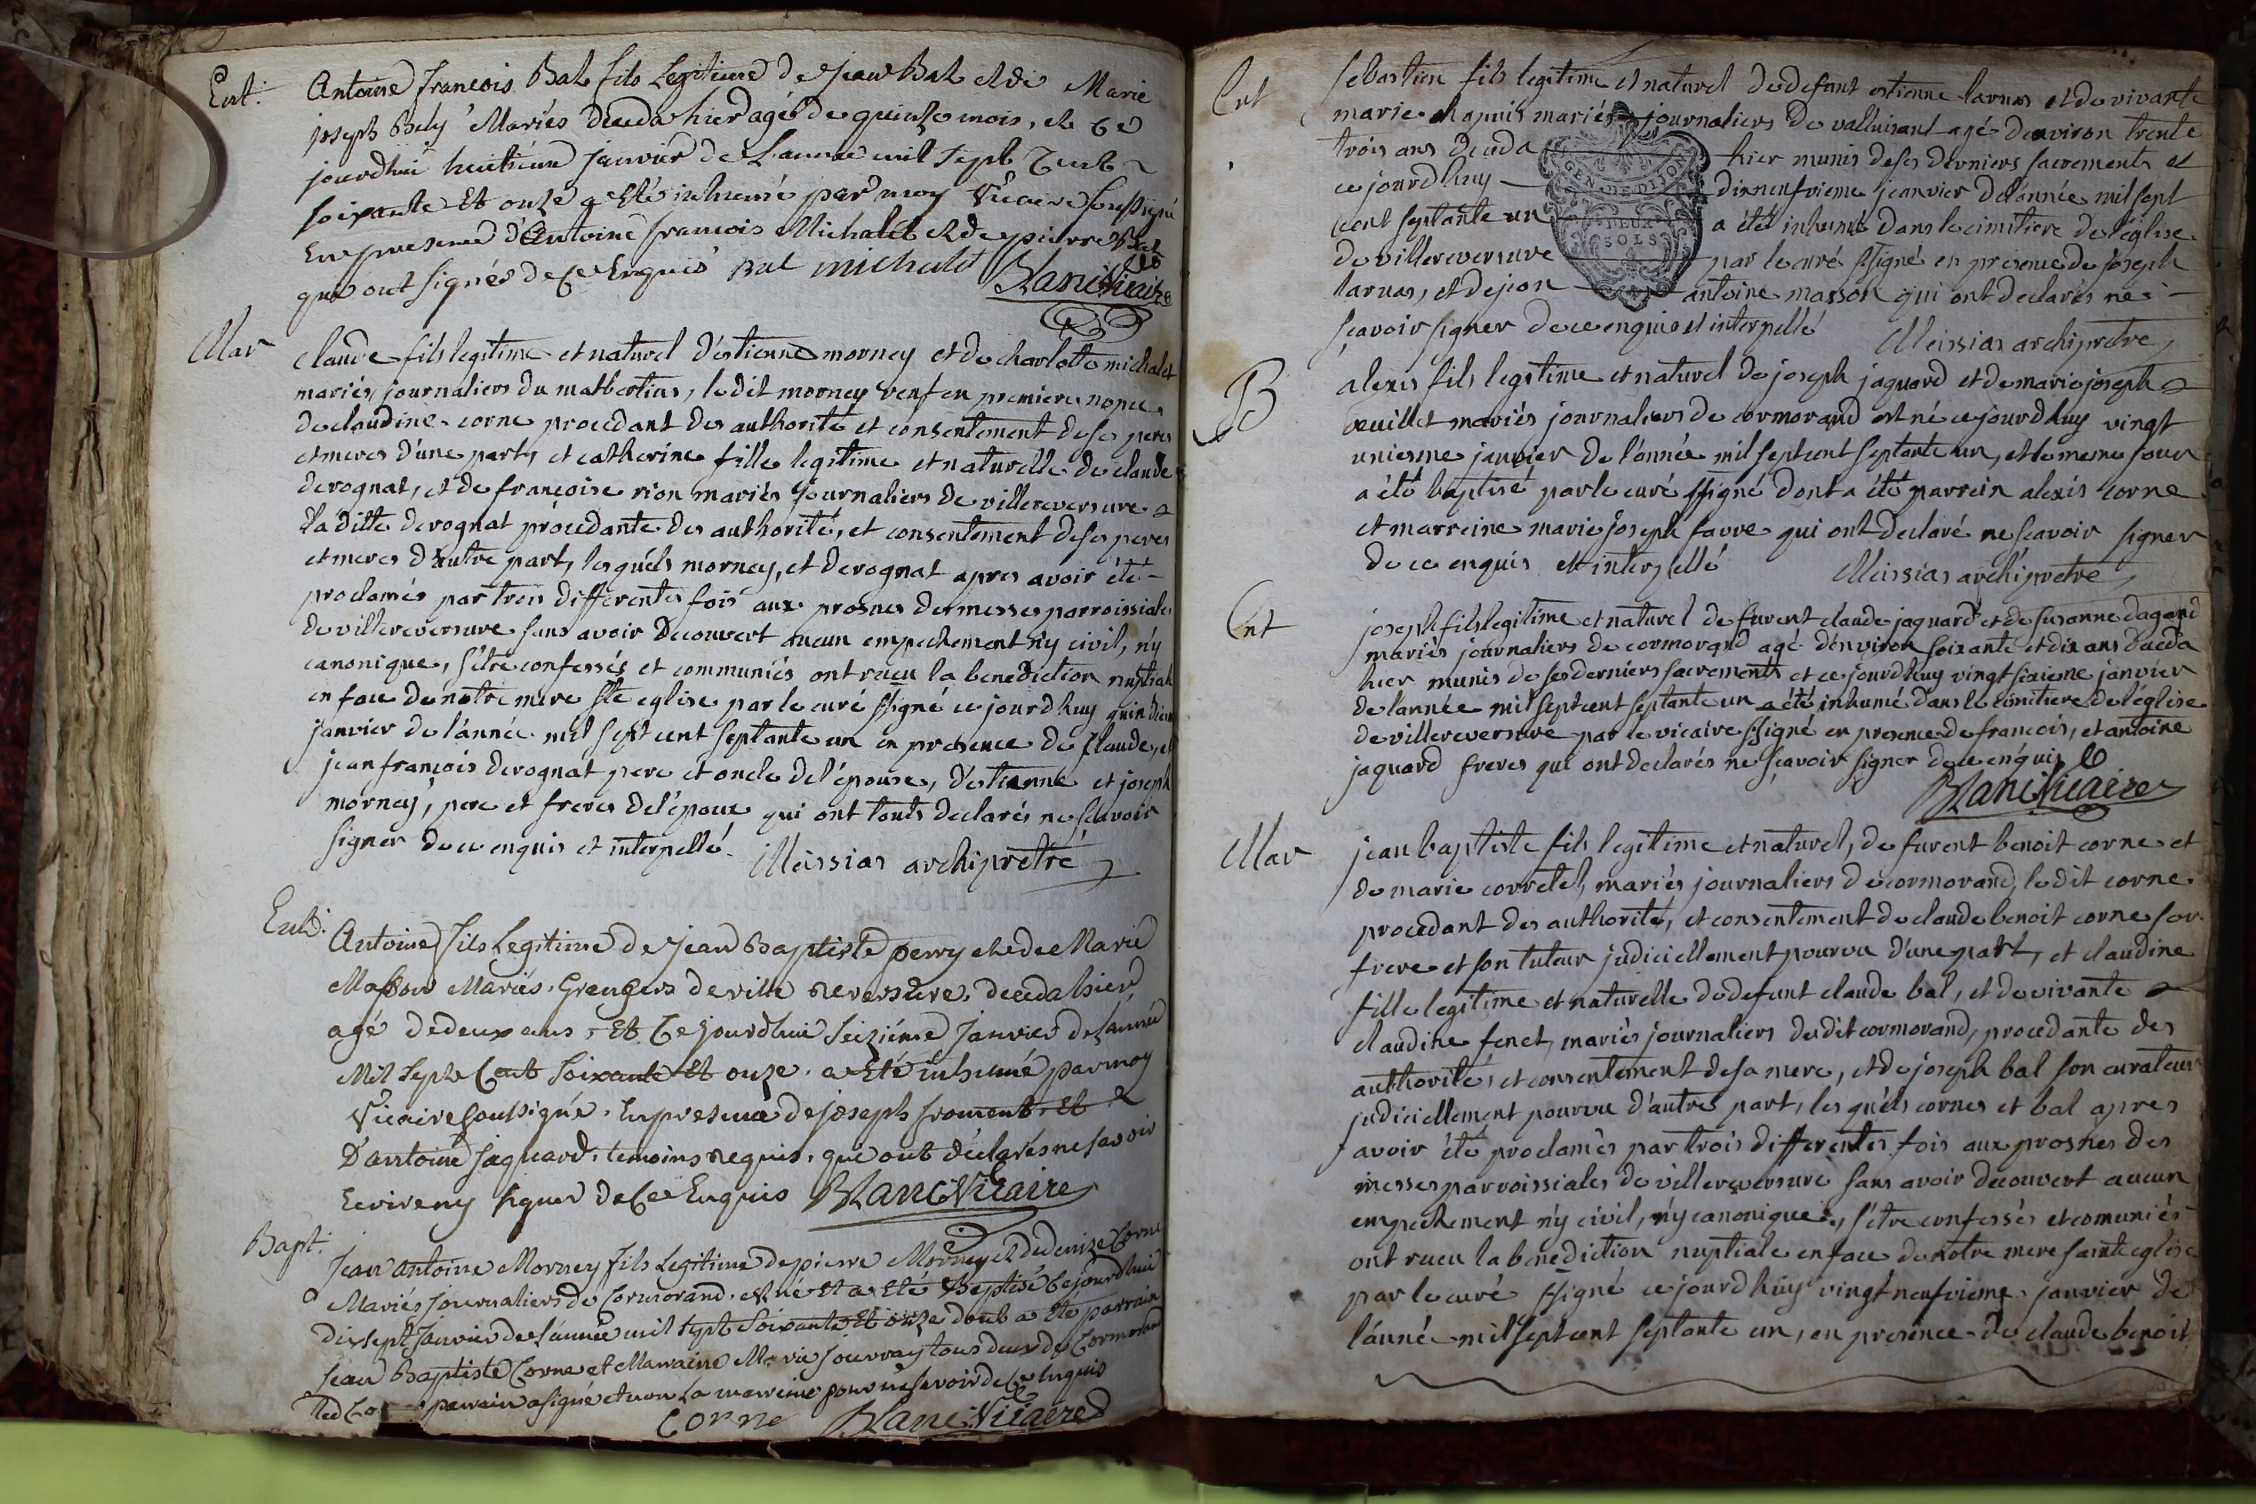 Ent.
Antoine francois Bal fils Legitime de jean Bal et de Marie
joseph Bely Mariés deceda hier agé de quinze mois, et ce
jourdhui huitieme janvier de L'année mil sept Cent
soixante Et onze a Eté inhumé par moy Vicaire soussigné
En presence d'Antoine francois Michalet et de pierre Bal
qui ont signés de Ce Enquis Bal michalet Blanc Vicaire
Mar
claude fils legitime et naturel d'estienne morney et de charlotte michalet
mariés journaliers du malbertius, le dit morney veuf en premiere nopce
de claudine corne procedant des authorité et consentement de ses peres
et meres d'une part, et catherine fille legitime et naturelle de claude
derognat, et de francoise rion mariés journaliers de villereversure
la ditte derognat procedante des authorité, et consentement de ses peres
et meres d'autre part, les quels morney, et derognat apres avoir été
proclamés par trois differentes fois aux prosnes des messes parroissiales
de villereversure sans avoir decouvert aucun empechement n'y civil, n'y
canonique, s'être confessés et communiés ont receu la benediction nuptiale
en face de notre mere ste eglise par le curé ssigné ce jourdhuy quinzieme
janvier de l'année mil sept cent septante un en presence de claude, et
jean francois derognat pere et oncle de l'épouse, d'estienne et joseph
morney, pere et freres de l'époux qui ont touts declarés ne scavoir
signer de ce enquis et interpellé. Messias archiprêtre
Ent.
Antoine fils Legitime de jean Baptiste perry et de Marie
Masson Mariés Grangers de ville Reversure, deceda hier
agé de deux ans Et Ce jourdhui seiziéme janvier de L'année
Mil Sept Cent soixante Et onze a Eté inhumé par moy
Vicaire soussigné, En presence de joseph froment Et
D'antoine jaquard, temoins requis, qui ont déclarés ne savoir
Ecrire ny signer de Ce Enquis Blanc Vicaire
Bapt.
Jean Antoine Morney fils Legitime de pierre Morney et de denize Corne
Mariés journaliers de Cormorand, est né Et a Eté Baptisé Ce jourdhui
dixsept janvier de L'année mil sept soixante Et onze dont a Eté parrain
jean Baptiste Corne et Marraine Marie jouvray tous deux de Cormorand
Led Co parrain a signé et non La marreine pour ne savoir de Ce Enquis
Corne Blanc Vicaire
Ent
sebastien fils legitime et naturel de defunt estienne larnas et de vivante
marie chapuis mariés journaliers de valluisant agé d'environ trente
trois ans deceda hier munis de ses derniers sacrements et
ce jourdhuy dixneufvieme janvier de l'année mil sept
cent septante un a été inhumé dans le cimitiere de l'église
de villereversure par le curé ssigné en presence de joseph
larnas, et de jean antoine masson qui ont declarés ne
scavoir signer de ce enquis et interpellé Messias archiprêtre
GEN. DE DIJON
DEUX
SOLS
B
alexis fils legitime et naturel de joseph jaquard et de marie joseph
oeuillet mariés journaliers de cormorand est né ce jourdhuy vingt
unieme janvier de l'année mil sept cent septante un, et le meme jour
a été baptisé par le curé ssigné dont a été parrein alexis corne
et marreine marie joseph favre qui ont declaré ne scavoir signer
de ce enquis et interpellé Messias archiprêtre
Ent
joseph fils legitime et naturel de furent claude jaquard et de susanne dagand
mariés journaliers de cormorand agé d'environ soixante et dix ans deceda
hier munis de ses derniers sacrements et ce jourdhuy vingt sixieme janvier
de l'année mil sept cent septante un a été inhumé dans le cimitiere de l'église
de villereversure par le vicaire ssigné en presence de francois, et antoine
jaquard freres qui ont declarés ne scavoir signer de ce enquis
Blanc Vicaire
Mar
jean baptiste fils legitime et naturel, de furent benoit corne et
de marie corretel, mariés journaliers de cormorand, le dit corne
procedant des authorité, et consentement de claude benoit corne son
frere et son tuteur judiciellement pourvu d'une part, et claudine
fille legitime et naturelle de defunt claude bal, et de vivante
claudine fenet, mariés journaliers du dit cormorand, procedante des
authorité, et consentement de sa mere, et de joseph bal son curateur
judiciellement pourvu d'autre part, les quels corne et bal apres
avoir été proclamés par trois differentes fois aux prosnes des
messes parroissiales de villereversure sans avoir decouvert aucun
empechement n'y civil, n'y canonique, s'être confessés et comuniés
ont receu la benediction nuptiale en face de notre mere sainte eglise
par le curé ssigné ce jourdhuy vingt neufvieme janvier de
l'année mil sept cent septante un, en presence de claude benoit